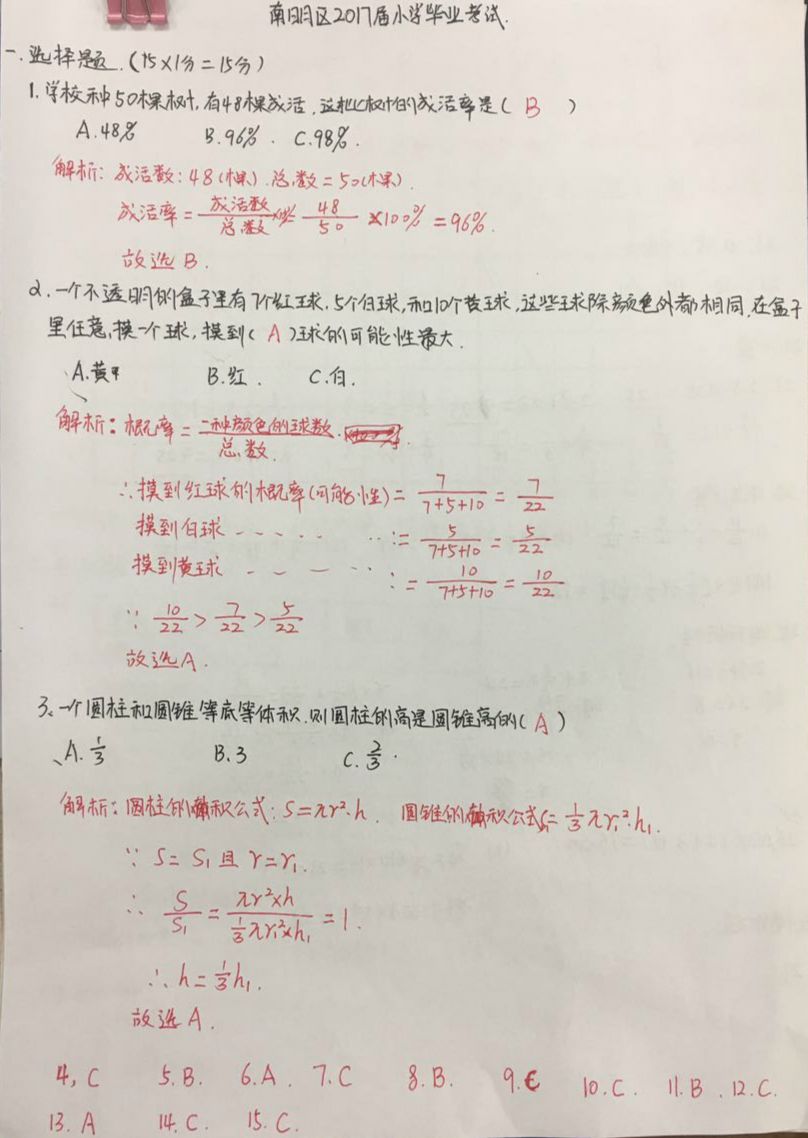 南明区2017届小学毕业考试.
一.选择题.(15×1分=15分)
1.学校种50棵树,有48棵成活,这批树的成活率是( B )
A.48% B.96%. C.98%.
解析:成活数:48(棵).总数=50(棵).
成活率=成活数/总数×100% 48/50 ×100%=96%.
故选B.
2.一个不透明的盒子里有7个红球.5个白球,和10个黄球,这些球除颜色外都相同.在盒子
里任意摸一个球,摸到( A )球的可能性最大.
A.黄 B.红. C.白.
解析:概率=一种颜色的球数/总数.
∴摸到红球的概率(可能性)=7/7+5+10=7/22
摸到白球 - - - - - - - :=5/7+5+10=5/22
摸到黄球 - - - - - - :=10/7+5+10=10/22
∵ 10/22>7/22>5/22
故选A.
3、一个圆柱和圆锥等底等体积.则圆柱的高是圆锥高的( A )
、A.1/3 B.3 C.2/3.
解析:圆柱的体积公式:S=πr²·h. 圆锥的体积公式S₁=1/3πr₁²·h₁.
∵ S=S₁且r=r₁.
∴ S/S₁=πr²×h/1/3πr₁²×h₁=1.
∴h=1/3h₁.
故选A.
4,C 5.B. 6.A. 7.C 8.B. 9.C 10.C. 11.B. 12.C.
13.A 14.C. 15.C.